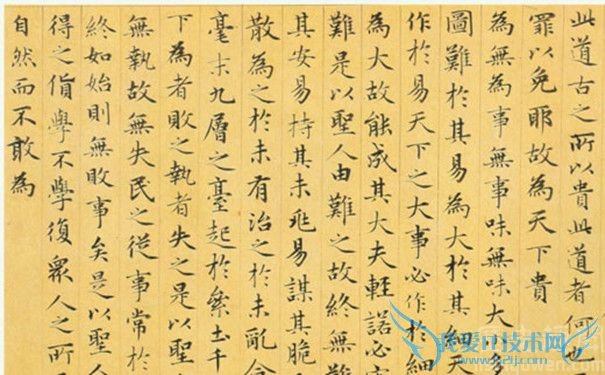 此道古之所以貴此道者何也
罪以免耶故為天下貴
為無為事無事味無味大
圖難於其易為大於其細天
作於易天下之大事必作於細
為大故能成其大夫輕諾必寡
難是以聖人由難之故終無難
其安易持其未兆易謀其脆
散為之於未有治之於未亂合
毫末九層之臺起於累土千
下為者敗之執者失之是以聖
無執故無失民之從事常於
終如始則無敗事矣是以聖人
得之貨學不學復衆人之所
自然而不敢為
我爱IT技术网